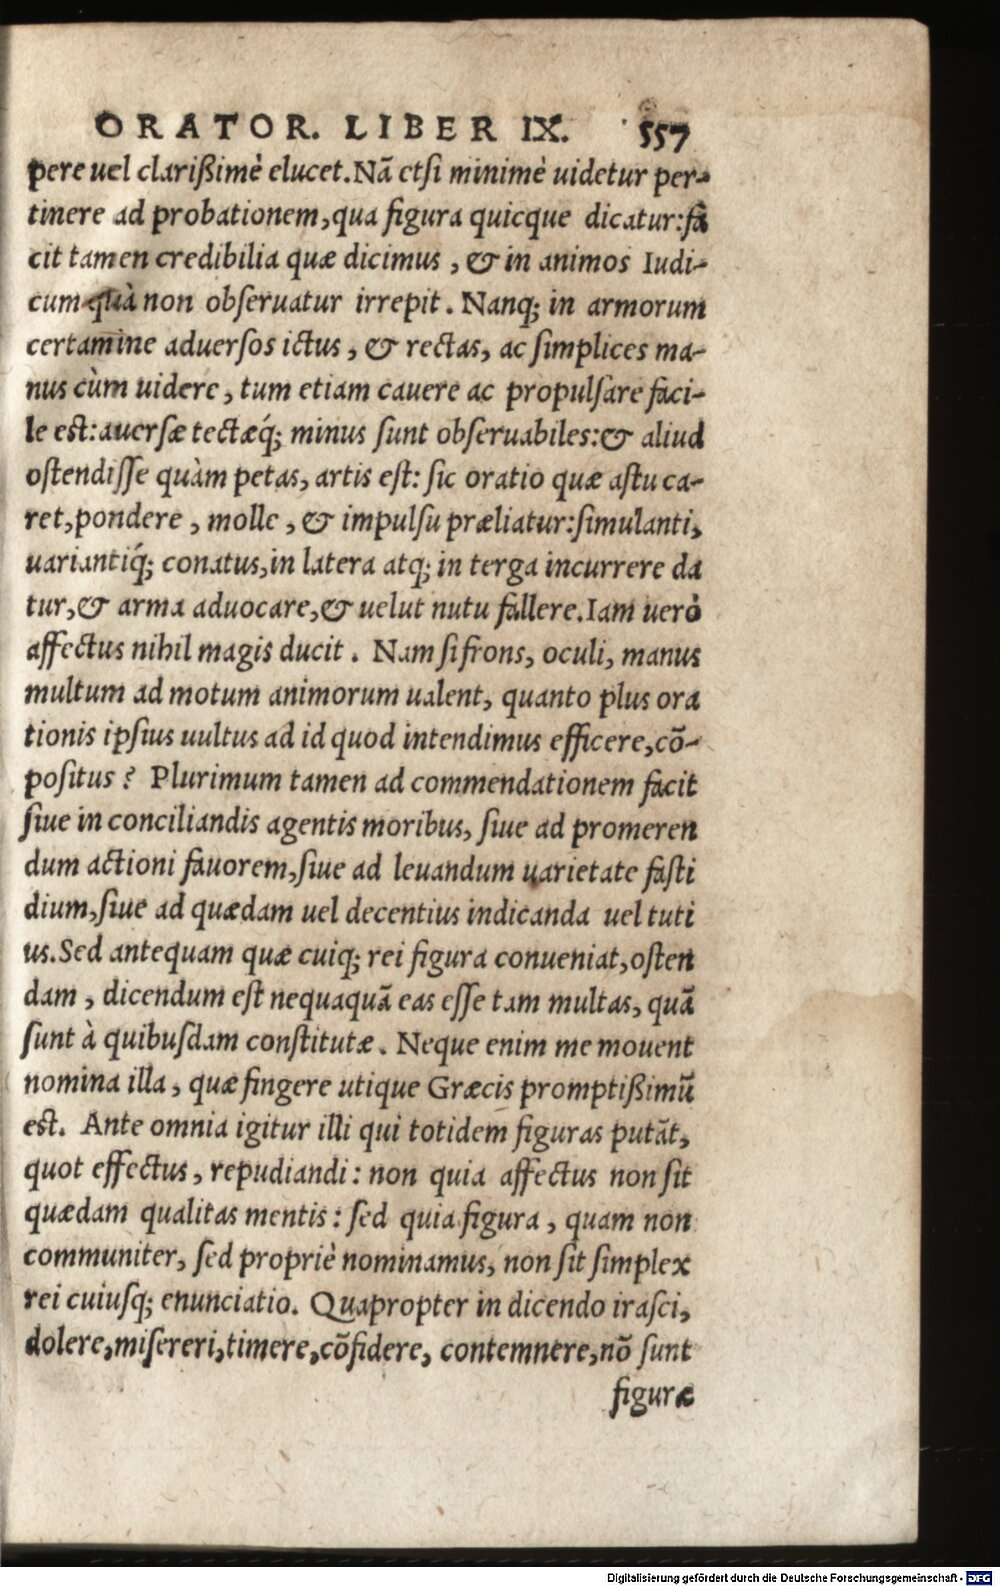 ORATOR. LIBER IX. 557
pere uel clarißimè elucet. Nā etsi minimè uidetur per-
tinere ad probationem, qua figura quicque dicatur: fa
cit tamen credibilia quæ dicimus, & in animos Iudi-
cum quà non obseruatur irrepit. Nanq; in armorum
certamine aduersos ictus, & rectas, ac simplices ma-
nus cùm uidere, tum etiam cauere ac propulsare faci-
le est: auersæ tectæq́; minus sunt obseruabiles: & aliud
ostendisse quàm petas, artis est: sic oratio quæ astu ca-
ret, pondere, molle, & impulsu præliatur: simulanti,
uariantiq́; conatus, in latera atq; in terga incurrere da
tur, & arma aduocare, & uelut nutu fallere. Iam uerò
affectus nihil magis ducit. Nam si frons, oculi, manus
multum ad motum animorum ualent, quanto plus ora
tionis ipsius uultus ad id quod intendimus efficere, cō-
positus? Plurimum tamen ad commendationem facit
siue in conciliandis agentis moribus, siue ad promeren
dum actioni fauorem, siue ad leuandum uarietate fasti
dium, siue ad quædam uel decentius indicanda uel tuti
us. Sed antequam quæ cuiq; rei figura conueniat, osten
dam, dicendum est nequaquā eas esse tam multas, quā
sunt à quibusdam constitutæ. Neque enim me mouent
nomina illa, quæ fingere utique Græcis promptißimū
est. Ante omnia igitur illi qui totidem figuras putāt,
quot effectus, repudiandi: non quia affectus non sit
quædam qualitas mentis: sed quia figura, quam non
communiter, sed propriè nominamus, non sit simplex
rei cuiusq; enunciatio. Quapropter in dicendo irasci,
dolere, misereri, timere, cōfidere, contemnere, nō sunt
figuræ
Digitalisierung gefördert durch die Deutsche Forschungsgemeinschaft - DFG